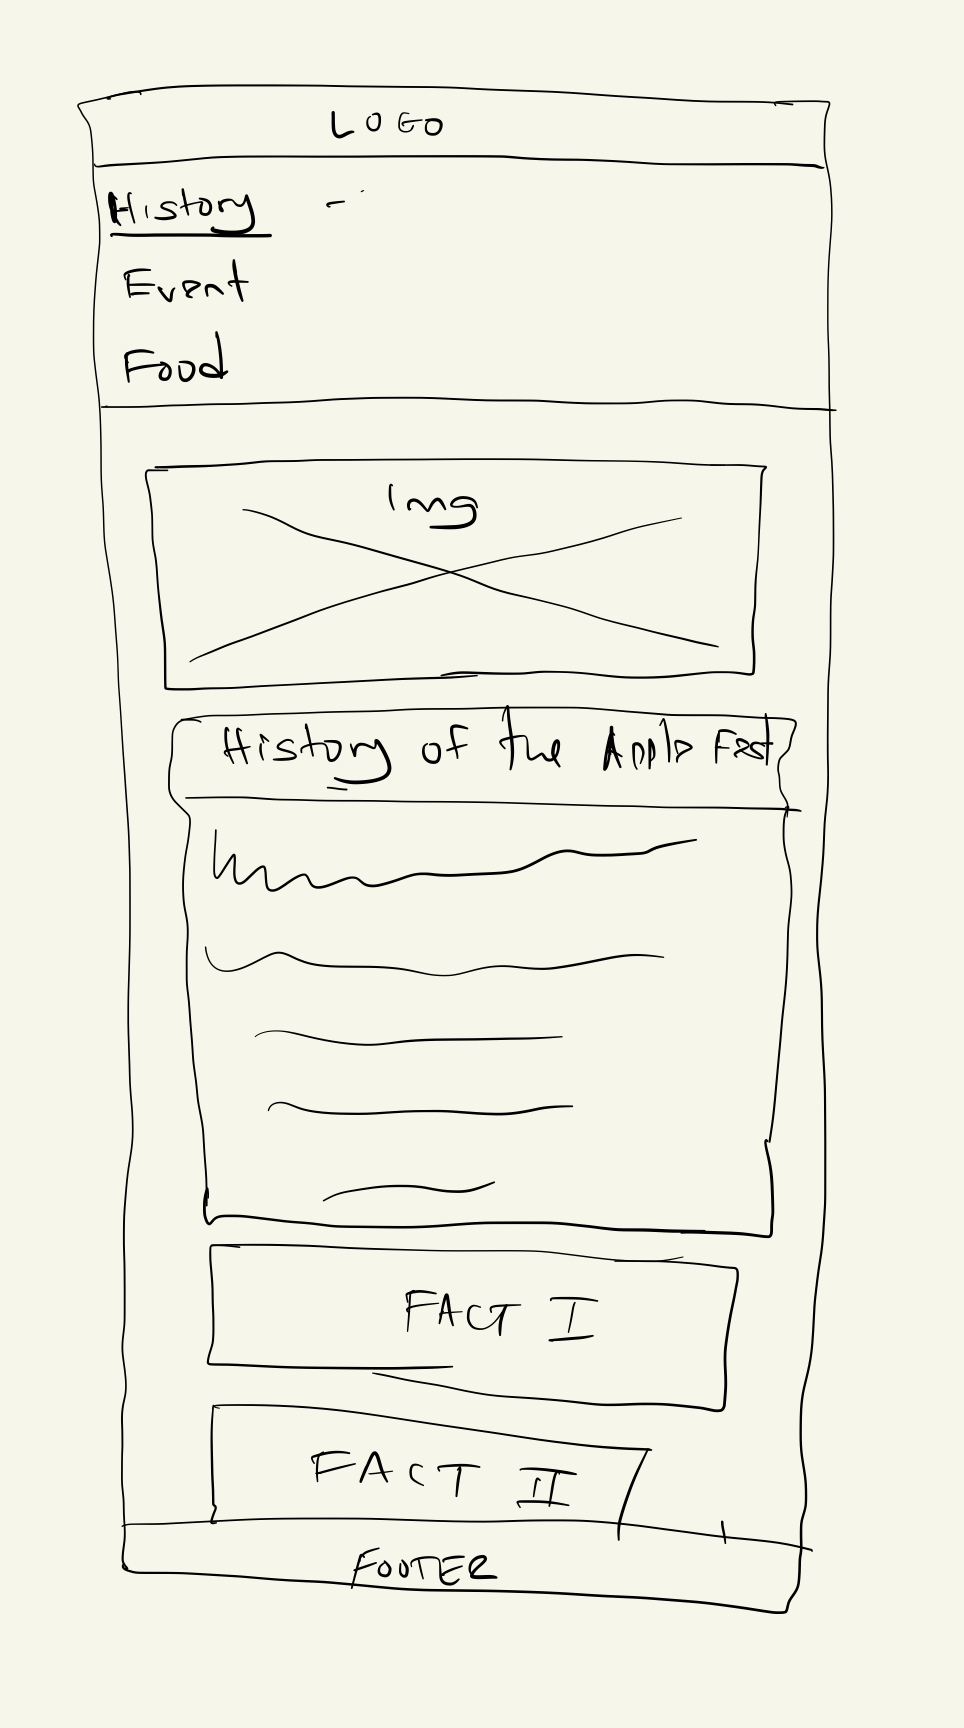 LOGO
History
Event
Food
Img
History of the Apple Fest
FACT I
FACT II
FOOTER